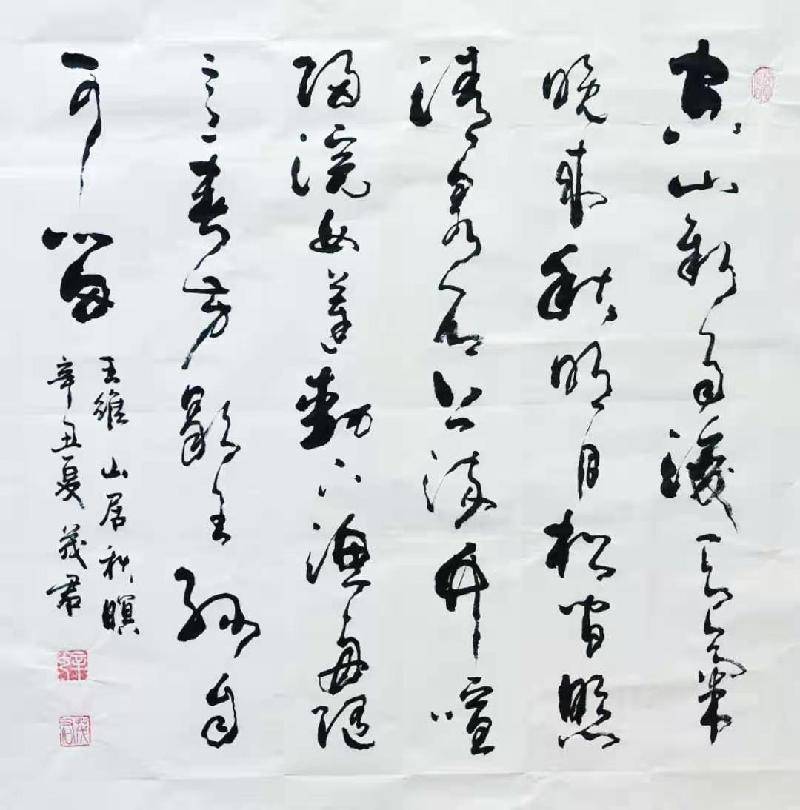 空山新雨後天氣
晚來秋明月松間照
清泉石上流竹喧
歸浣女蓮動下漁舟隨
意春芳歇王孫自
可留
王維 山居秋暝
辛丑夏 茂君